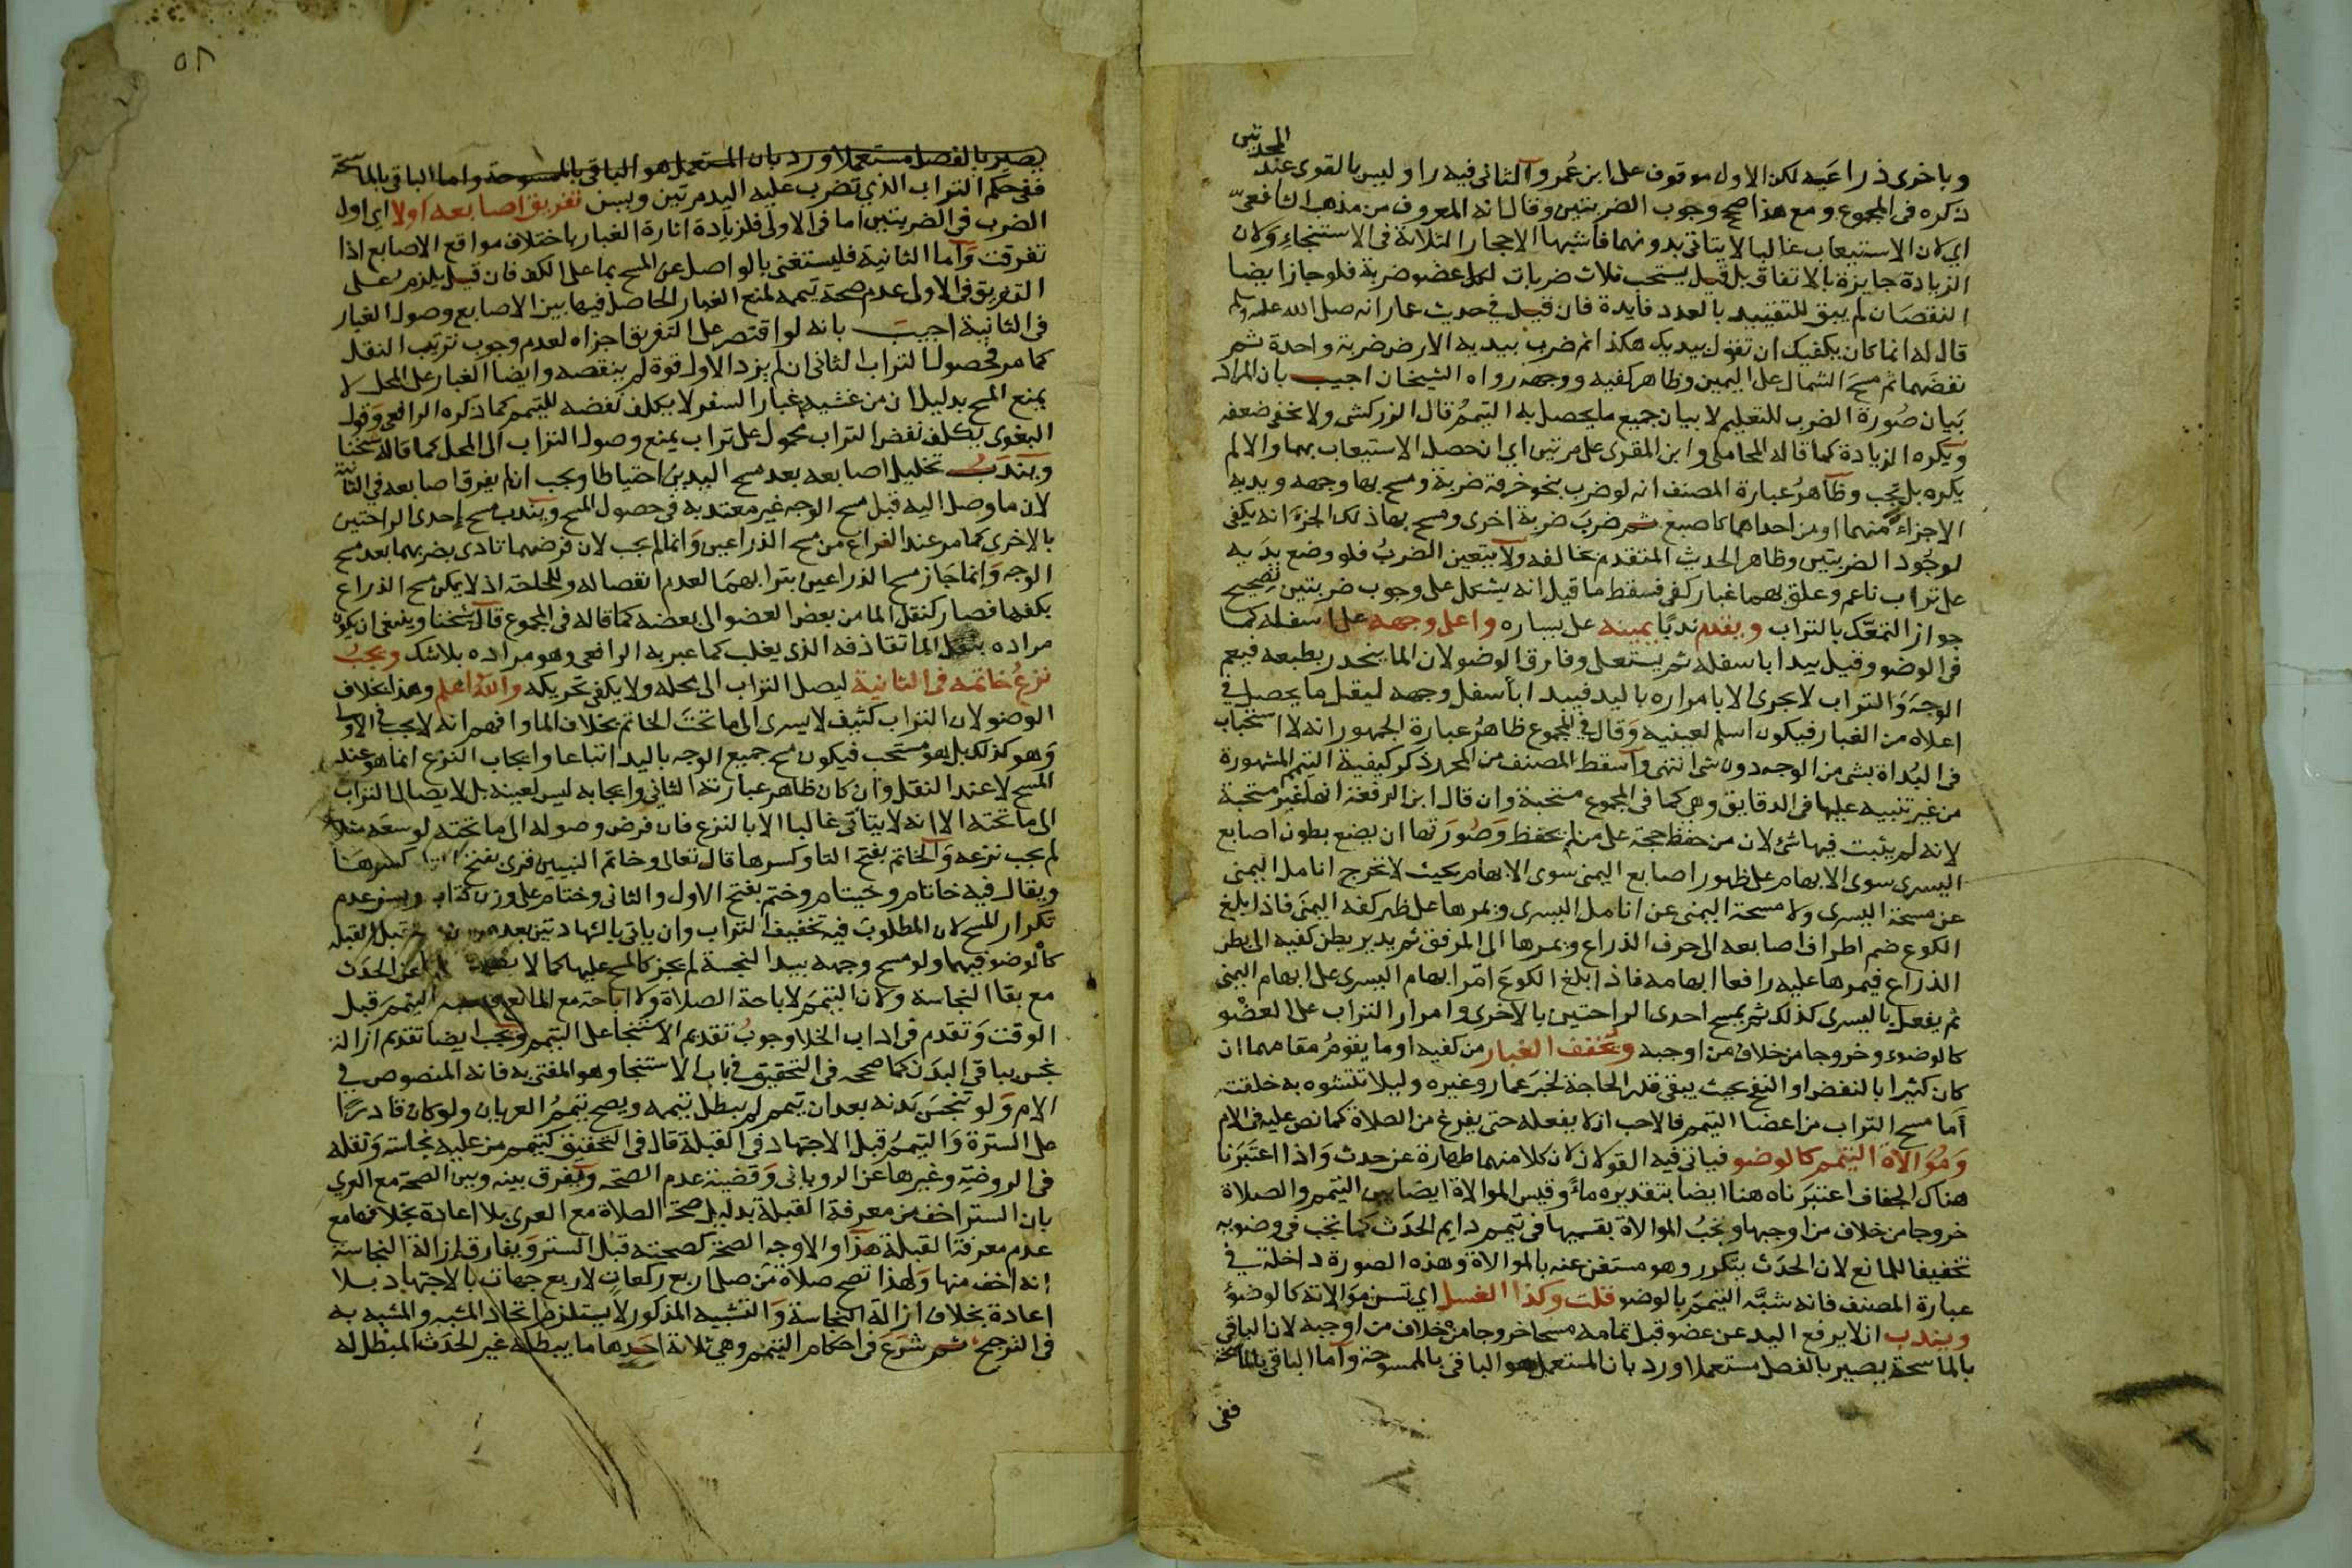 المحدثين
وباخرى ذراعيه لكن الاول موقوف على ابن عُمر والثانى فيه راو ليس بالقوى عند
ذكره فى المجموع ومع هذا صحح وجوب الضربتين وقال انه المعروف من مذهب الشافعىّ
اي لان الاستيعاب غالبا لا يتاتى بدونهما فاشبها الاحجار الثلاثة فى الاستنجاءِ ولان
الزيادة جايزة بالاتفاق بل قيل يستحب ثلاث ضربات لكل عضو ضربة فلو جاز ايضا
النقصان لم يبق للتقييد بالعدد فايدة فان قيل فى حديث عمار انه صلى الله عليه وسلم
قال له انما كان يكفيك ان تقول بيديك هكذا ثم ضرب بيديه الارض ضربة واحدة ثم
نفضهما ثم مسح الشمال على اليمين وظاهر كفيه ووجهه رواه الشيخان اجيب بان المراد
بَيان صُورة الضرب للتعليم لا بيان جميع ما يحصل به التيممُ قال الزركشى ولا يخفى ضعفه
ويكره الزيادة كما قاله المحاملى وابن المقرى على مرتين اي ان حصل الاستيعاب بهما والا لم
يكره بل تجب وظاهرُ عبارة المصنف انه لو ضرب بنحو خرقة ضربة ومسح بها وجهه ويديه
الاجزاءً منهما او من احداهما كاصبع ثم ضربَ ضربة اخرى ومسح بها ذلك الجزءَ انه يكفى
لوجُود الضربتين وظاهر الحديث المتقدم يخالفه ولا يتعين الضربُ فلو وضع يدَيه
على تراب ناعم وعلق بهما غبار كفى فسقط ما قيل انه يشكل على وجوب ضربتين تصحيح
جواز التمعّك بالتراب ويقدم ندبًا يمينه على يساره واعلى وجهه على اسفله كما
فى الوضو وقيل يبدا باسفله ثم يستعلى وفارق الوضو لان الما ينحدر بطبعه فيعم
الوجهَ وَالتراب لا يجرى الا بامراره باليد فيبدا باسفل وجهه ليقل ما يحصل فى
اعلاه من الغبار فيكون اسلم لعينيه وَقال فى المجموع ظاهرُ عبارة الجمهور انه لا استحباب
فى البُداة بشى من الوجه دون شى انتهى واسقط المصنف من المحرر ذكر كيفية التيمم المشهورة
من غير تنبيه عليها فى الدقايق وهى كما فى المجموع مستحبة وان قال ابن الرفعة انها غير مستحبة
لانه لم يثبت فيها شئ لان من حفظ حجة على من لم يحفظ وَصُورَتها ان يضع بطون اصابع
اليسرى سوى الابهام على ظهور اصابع اليمنى سوى الابهام بحيث لا تخرج انامل اليمنى
عن مسبحة اليسرى ولا مسبحة اليمنى عن انامل اليسرى ويمرها على ظهر كفه اليمنَى فاذا بلغ
الكوع ضم اطراف اصابعه الى حرف الذراع ويمرها الى المرفق ثم يدير بطن كفيه الى بطن
الذراع فيمرها عليه رافعا ابهامه فاذا بلغ الكوعَ امَر ابهام اليسرى على ابهام اليمنى
ثم يفعل باليسرى كذلك ثم يمسح احدى الراحتين بالاخرى وامرار التراب على العضْو
كالوضوء وخروجا من خلاف من اوجبه وتخفف الغبار من كفيه او ما يقومُ مقامهما ان
كان كثيرا بالنفض او النفخ بحيث يبقى قدر الحاجة لخبر عمار وغيره وليلا تتشوه به خلقته
اَما مسح التراب من اعضا التيمم فالاحب ان لا يفعله حتى يفرغ من الصلاة كما نص عليه فى الام
وَمُوَالاة التيمم كالوضو فياتى فيه القولان لان كلا منهما طهارة عن حدث وَاذا اعتبَرنا
هناك الجفاف اعتبَرناه هنا ايضا بتقديره ماءً وقيس الموالاة ايضا بين التيمم والصلاة
خروجا من خلاف من اوجبها وتجبُ الموالاة بقسميها فى تيمم دايم الحدَث كما تجب فى وضوئه
تخفيفا للمانع لان الحدَث يتكرر وهو مستغن عنه بالموالاة وهذه الصورة داخلة فى
عبارة المصنف فانه شبّه التيممَ بالوضو قلت وكذا الغسل اي تسن موَالاته كالوضوءِ
ويندب ان لا يرفع اليد عن عضو قبل تمامه مسحا خروجا من خلاف من اوجبه لان الباقى
بالماسحة يصير بالفصل مستعملا ورد بان المستعمل هو الباقى بالممسوحة واما الباقى بالماسحة
ففى
٥٨
يصير بالفصل مستعملا ورد بان المستعمل هو الباقى بالممسوحة واما الباقى بالماسحة
ففى حكم التراب الذي تضرب عليه اليد مرتين ويسن تفريق اصابعه اولا اي اول
الضرب فى الضربتين اما فى الاولى فلزيادة اثارة الغبار باختلاف مواقع الاصابع اذا
تفرقت وَاما الثانية فليستغنى بالواصل عن المسح بما على الكف فان قيل يلزم على
التفريق فى الاولى عدم صحة تيممه لمنع الغبار الحاصل فيها بين الاصابع وصول الغبار
فى الثانية اجيب بانه لو اقتصر على التفريق اجزاه لعدم وجوب ترتيب النقل
كما مر فحصول التراب الثانى ان لم يزد الاول قوة لم ينقصه وايضا الغبار على المحل لا
يمنع المسح بدليل ان من غشيه غبار السفر لا يكلف نفضه للتيمم كما ذكره الرافعى وَقول
البغوى يكلف نفض التراب محمول على تراب يمنع وصول التراب الى المحل كما قاله شيخنا
ويندبُ تخليل اصابعه بعد مسح اليدين احتياطا ويجب ان لم يفرق اصابعه فى الثانية
لان ما وصل اليه قبل مسح الوجه غير معتد به فى حصول المسح ويندب مسح إحدى الراحتين
بالاخرى كما مر عند الفراغ من مسح الذراعين وَانما لم يجب لان فرضهما تادى بضربهما بعد مسح
الوجه وَانما جَاز مسح الذراعين بترابهمَا لعدم انفصاله وللحاجة اذ لا يمكن مسح الذراع
بكفها فصار كنقل الما من بعض العضو الى بعضه كما قاله فى المجموع قال شيخنا وينبغى ان يكون
مراده بنقل الما تقاذفه الذى يغلب كما عبر به الرافعى وهو مراده بلاشك ويجبُ
نزعُ خاتمه فى الثانية ليصل التراب الى محله ولا يكفى تحريكه واللهُ اعلم وهذا بخلاف
الوضو لان التراب كثيف لا يسرى الى ما تحتَ الخاتم بخلاف الما وافهم انه لا يجب فى الاولى
وَهو كذلك بل هو مستحب فيكون مسح جميع الوجه باليد اتباعا وايجاب النزع انما هو عند
المسح لا عند النقل وَان كان ظاهر عبارته الثانى وايجابه ليس لعينه بل لايصال التراب
الى ما تحته الا انه لا يتاتى غالبا الا بالنزع فان فرض وصوله الى ما تحته لوسعه مثلا
لم يجب نزعه وَالخاتم بفتح التا وكسرها قال تعالى وخاتم النبيين قرى بفتح التا وكسرهَا
ويقال فيه خاتام وخيتام وختم بفتح الاول والثانى وختام على وزن كتاب ويسن عدم
تكرار المسح لان المطلوبَ فيه تخفيف التراب وان ياتى بالشهادتين بعده مستقبل القبلة
كالوضو فيهما ولو مسح وجهه بيد النجسة لم يجز كالمسح عليها كما لا عن الحدَث
مع بقا النجاسة ولان التيممَ لاباحة الصلاة ولا اباحة مع المانع التيمم قبل
الوقت وَتقدم فى اداب الخلا وجوبُ تقديم الاستنجا على التيمم ويجب ايضا تقديم ازالة
نجس بباقى البدَن كما صححه فى التحقيق فى باب الاستنجا وهو المفتى به فانه المنصوص فى
الام وَلو تنجسَ بدنه بعد ان تيمم لم يبطل تيممه ويصح تيممُ العريان ولو كان قادرًا
على السترة وَالتيممُ قبل الاجتهاد فى القبلة قال فى التحقيق كتيمم من عليه نجاسة وَنقله
فى الروضة وغيرها عن الرويانى وَقضيته عدم الصحة ويفرق بينه وبين الصحة مع العري
بان الستر اخف من معرفة القبلة بدليل صحة الصلاة مع العرى بلا اعادة بخلافها مع
عدم معرفة القبلة هذا والاوجه الصحة كصحته قبل الستر وَيفارق ازالة النجاسة
انه اخف منها وَلهذا تصح صلاة من صلى اربع ركعات لاربع جهات بالاجتهاد بلا
اعادة بخلاف ازالة النجاسة وَالتشبيه المذكور لا يستلزم اتحاد المشبه والمشبه به
فى الترجيح ثم شرَعَ فى احكام التيمم وهى ثلاثة احَدها ما يبطله غير الحدَث المبطل له